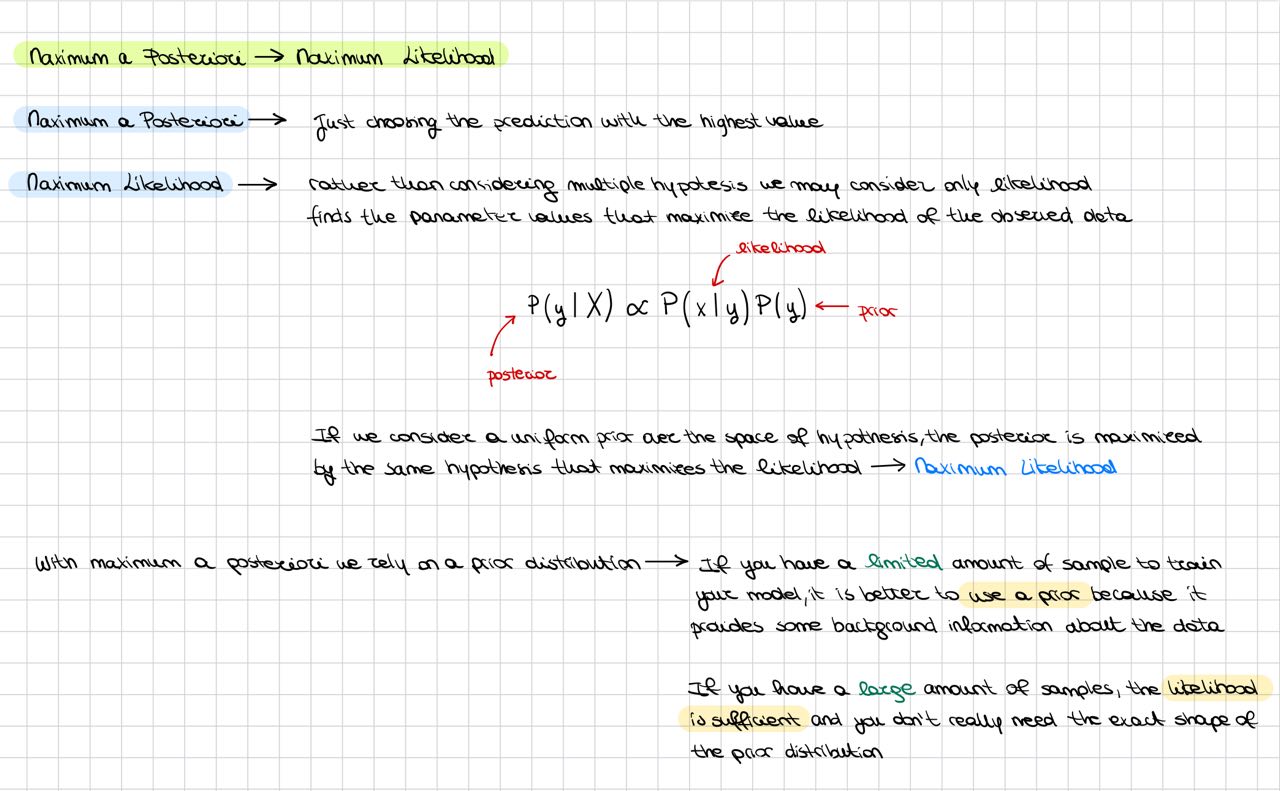 Maximum a Posteriori → Maximum Likelihood
Maximum a Posteriori → Just choosing the prediction with the highest value
Maximum Likelihood → rather than considering multiple hypotesis we may consider only likelihood
finds the parameter values that maximize the likelihood of the observed data
likelihood
P(y|X) ∝ P(x|y)P(y) ← prior
posterior
If we consider a uniform prior over the space of hypothesis, the posterior is maximized
by the same hypothesis that maximizes the likelihood → Maximum Likelihood
With maximum a posteriori we rely on a prior distribution → If you have a limited amount of sample to train
your model, it is better to use a prior because it
provides some background information about the data
If you have a large amount of samples, the likelihood
is sufficient and you don't really need the exact shape of
the prior distribution